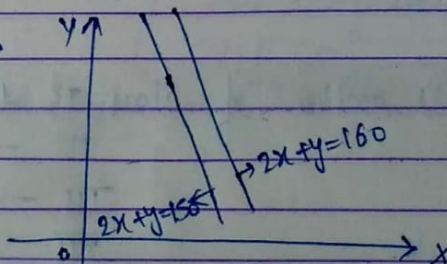 Y
2x+y=160
2x+y=150
0
X